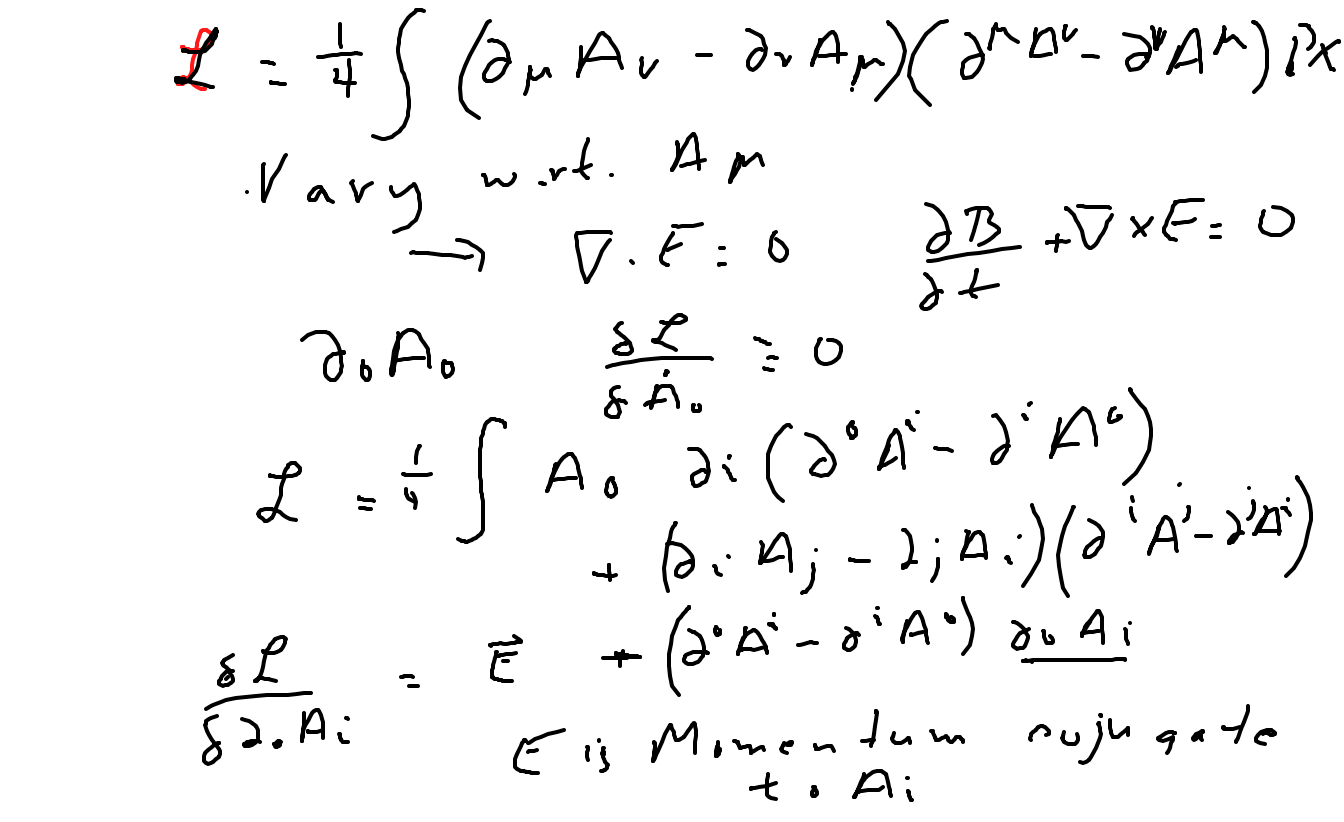 ℒ = 1/4 ∫ (∂μ Aν - ∂ν Aμ)(∂^μ A^ν - ∂^ν A^μ) d³x
Vary w.r.t. Aμ
→ ∇·E = 0 ∂B/∂t + ∇×E = 0
∂₀A₀ δℒ/δȦ₀ ≡ 0
ℒ = 1/4 ∫ A₀ ∂i (∂⁰A^i - ∂^i A⁰)
+ (∂i Aj - ∂j Ai)(∂^i A^j - ∂^j A^i)
+ (∂⁰A^i - ∂^i A⁰) ∂₀Ai
δℒ/δ∂₀Ai = E⃗
E is Momentum cojugate
to Ai